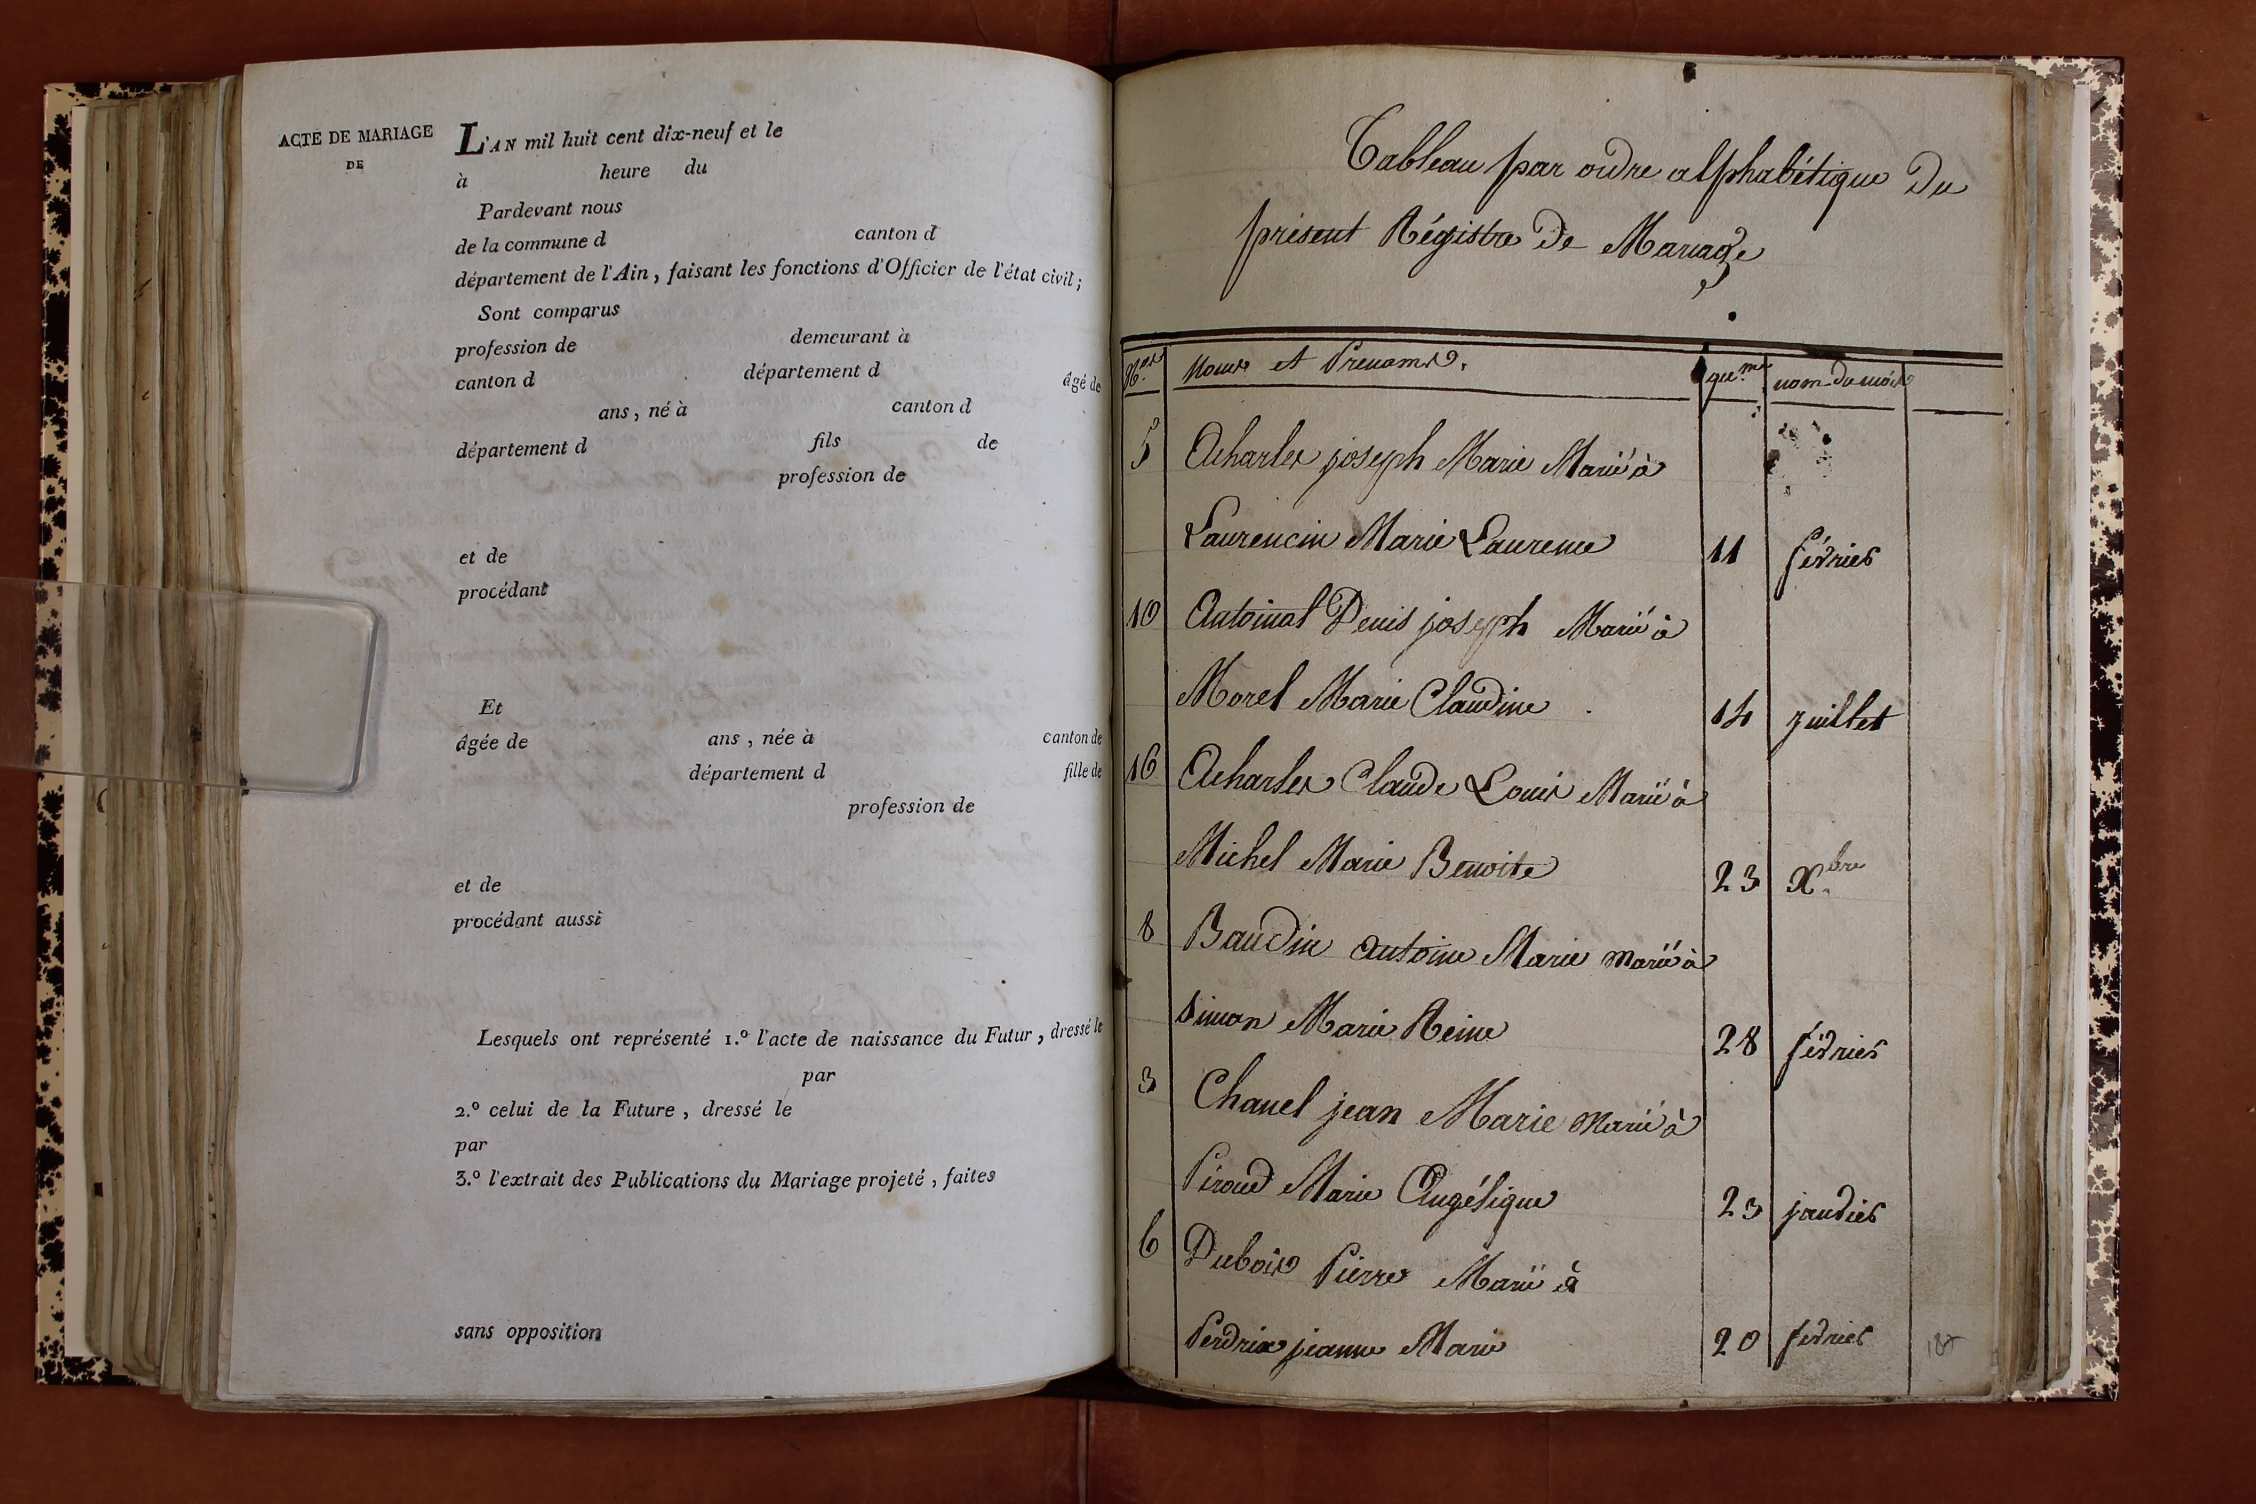 ACTE DE MARIAGE
DE
L'AN mil huit cent dix-neuf et le
à heure du
Pardevant nous
de la commune d canton d
département de l'Ain, faisant les fonctions d'Officier de l'état civil;
Sont comparus
profession de demeurant à
canton d département d âgé de
ans, né à canton d
département d fils de
profession de
et de
procédant
Et
âgée de ans, née à canton de
département d fille de
profession de
et de
procédant aussi
Lesquels ont représenté 1.º l'acte de naissance du Futur, dressé le
par
2.º celui de la Future, dressé le
par
3.º l'extrait des Publications du Mariage projeté, faites
sans opposition
Tableau par ordre alphabétique du
présent Régistre de Mariage
N.os Noms et Prenoms. que.me nom du mois
5 Acharles joseph Marie Marié à
Laurencin Marie Laurence 11 février
10 Antoinat Denis joseph Marié à
Morel Marie Claudine 14 juillet
16 Acharles Claude Louis Marié à
Michel Marie Benoite 23 Xbre
8 Baudin antoine Marie marié à
Simon Marie Reine 28 février
3 Chanel jean Marie Marié à
Piroud Marie Angélique 23 janvier
6 Dubois Pierre Marié à
Perdrix jeanne Marie 20 fevrier
187